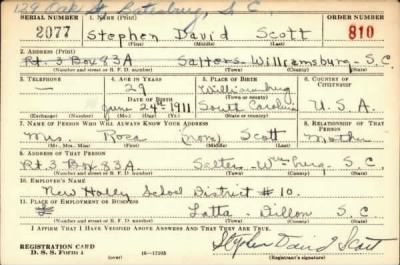 129 Oak St, Batesburg, S. C.
SERIAL NUMBER 1. NAME (Print) ORDER NUMBER
2077 Stephen David Scott 810
(First) (Middle) (Last)
2. ADDRESS (Print)
Rt. 3 Box 83A Salters-Williamsburg - S.C.
(Number and street or R. F. D. number) (Town) (County) (State)
3. TELEPHONE 4. AGE IN YEARS 5. PLACE OF BIRTH 6. COUNTRY OF CITIZENSHIP
— 29 Williamsburg
(Town or county)
DATE OF BIRTH
June 24th 1911 South Carolina U. S. A.
(Exchange) (Number) (Mo.) (Day) (Yr.) (State or country)
7. NAME OF PERSON WHO WILL ALWAYS KNOW YOUR ADDRESS 8. RELATIONSHIP OF THAT PERSON
Mrs. Rosa (non) Scott Mother
(Mr., Mrs., Miss) (First) (Middle) (Last)
9. ADDRESS OF THAT PERSON
Rt. 3 Box 83A Salters - Wmsburg - S. C.
(Number and street or R. F. D. number) (Town) (County) (State)
10. EMPLOYER'S NAME
New Holly School District # 10.
11. PLACE OF EMPLOYMENT OR BUSINESS
Latta - Dillon S. C.
(Number and street or R. F. D. number) (Town) (County) (State)
I AFFIRM THAT I HAVE VERIFIED ABOVE ANSWERS AND THAT THEY ARE TRUE.
REGISTRATION CARD
D. S. S. Form 1 (over) 16—17105 Stephen David Scott
(Registrant's signature)